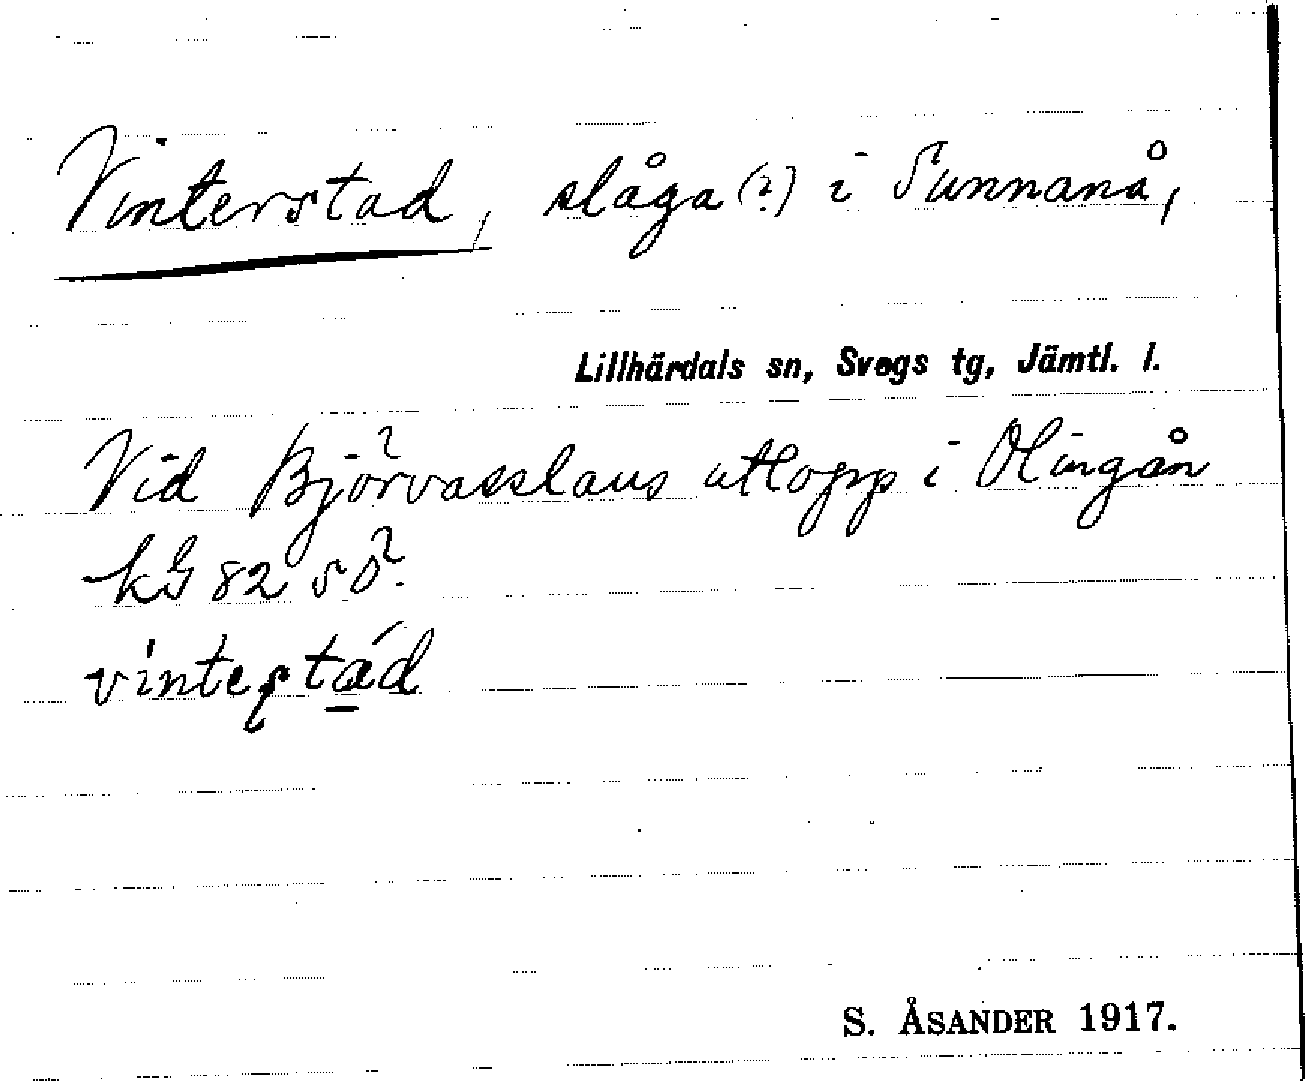 Vinterstad, slåga (?) i Sunnanå,
Lillhärdals sn, Svegs tg, Jämtl. l.
Vid Björvasslans utlopp i Olingån
kG 82 sö.
S. ÅSANDER 1917.